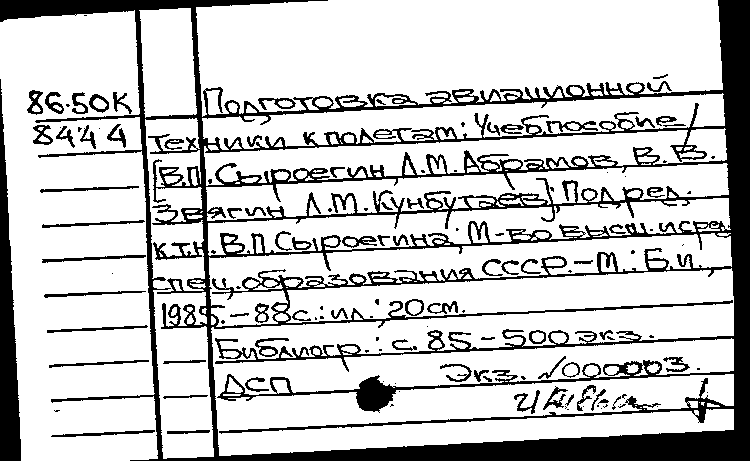 86-50К Подготовка авиационной
8444 техники к полетам: Учеб. пособие /
[В.П. Сыроегин, Л.М. Абрамов, В.В.
Звягин, Л.М. Кунбутаев]; Под ред.
к.т.н. В.П. Сыроегина; М-во высш. и сред.
спец. образования СССР. - М.: Б.и.,
1985. - 88 с.: ил.; 20 см.
Библиогр.: с. 85. - 500 экз.
ДСП Экз. №000003.